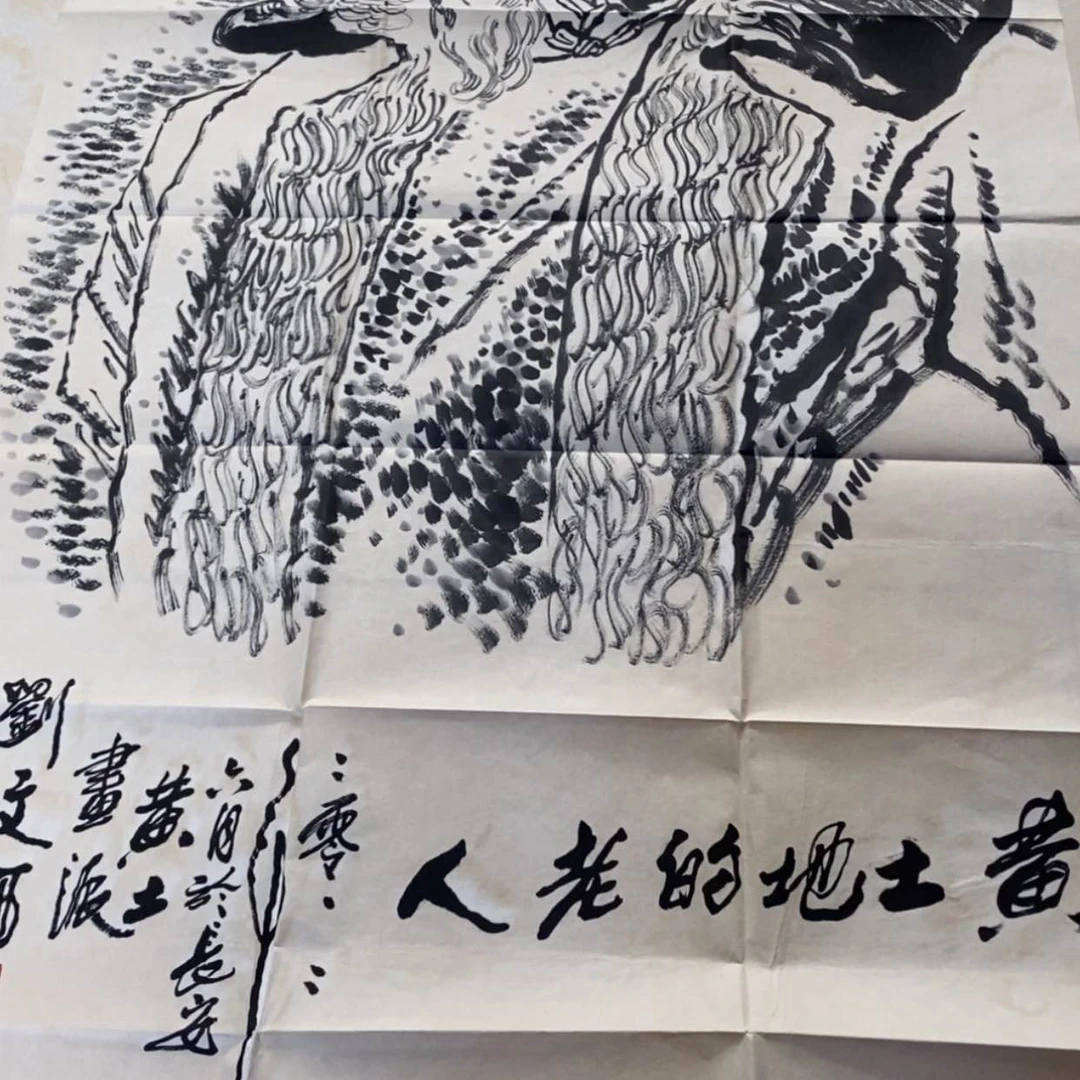 黄土地的老人
二零一二
年
六月於長安
黄土
畫派
劉文西